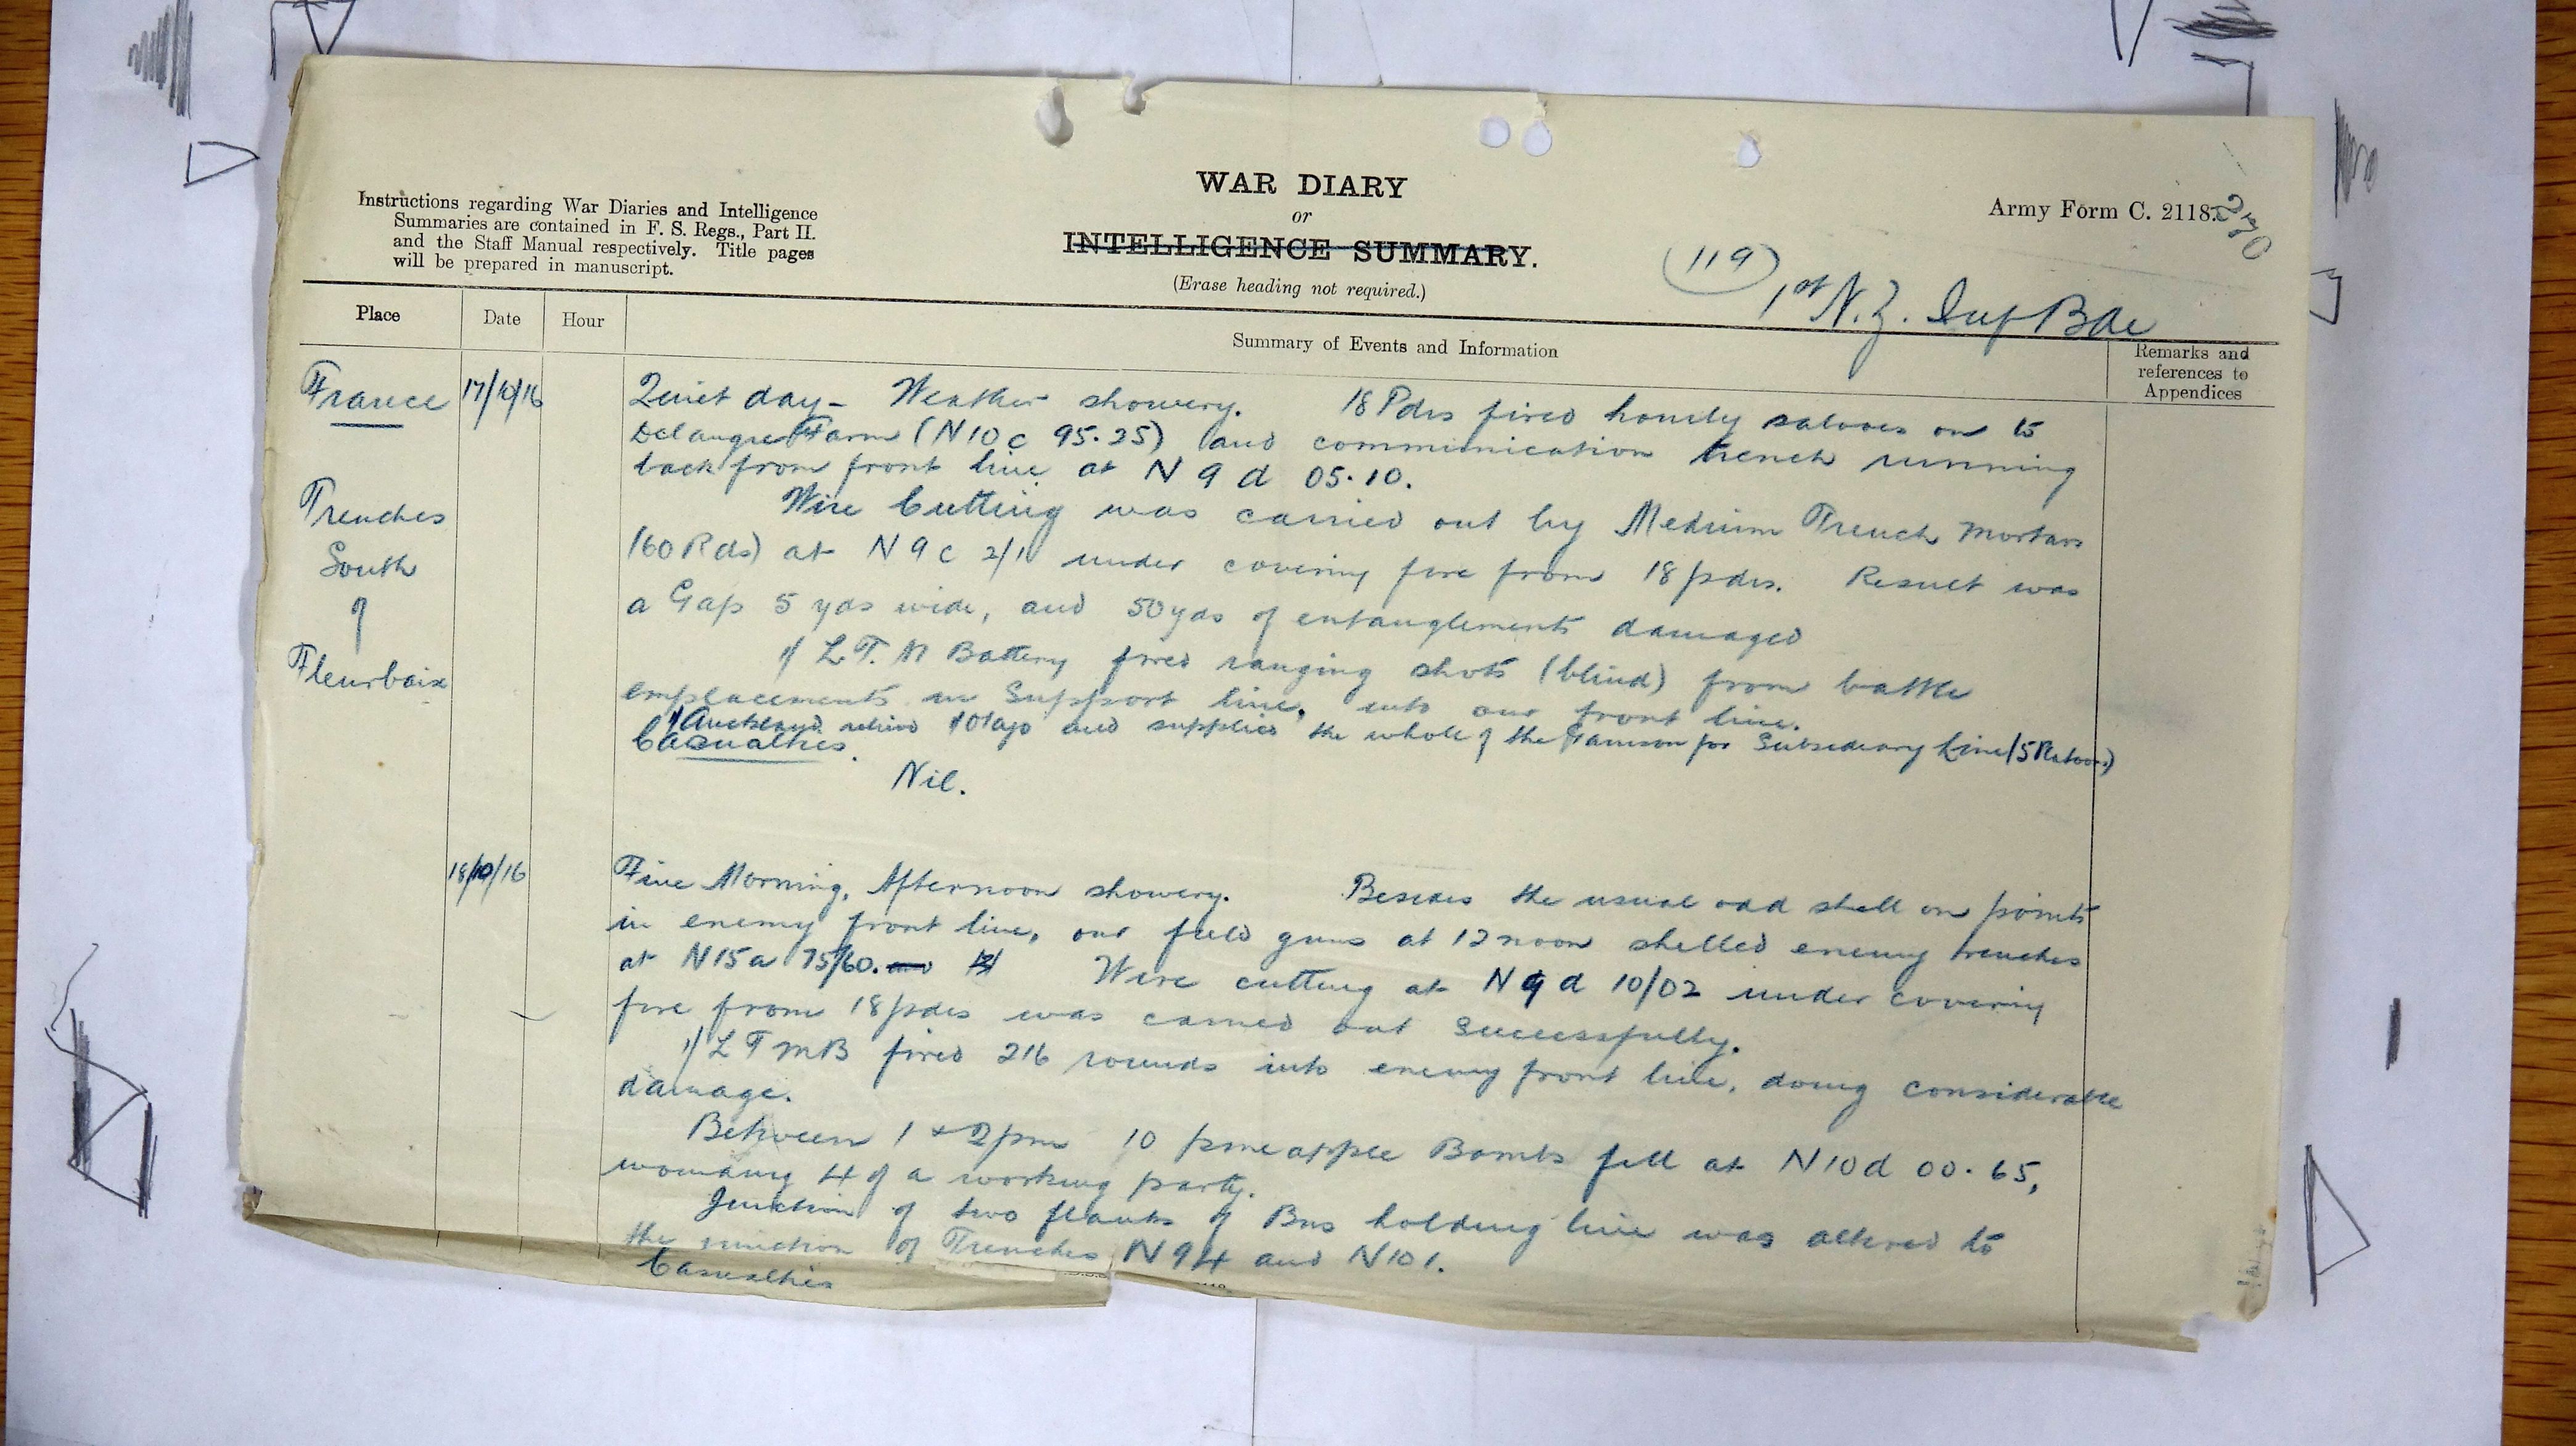 WAR DIARY
or
INTELLIGENCE SUMMARY.
(Erase heading not required.)
Instructions regarding War Diaries and Intelligence
Summaries are contained in F. S. Regs., Part II.
and the Staff Manual respectively. Title pages
will be prepared in manuscript.
Army Form C. 2118.
(119)
1st N.Z. Inf Bde
Place
Date
Hour
Summary of Events and Information
Remarks and
references to
Appendices
France
17/10/16
Trenches
South
of
Fleurbaix
Quiet day - Weather showery. 18 Pdrs fired hourly salvoes on to
Delangre Farm (N10c 95.25) and communication trench running
back from front line at N 9 d 05.10.
Wire Cutting was carried out by Medium Trench Mortars
(60 Rds) at N 9 c 2/1 under covering fire from 18 pdrs. Result was
a Gap 5 yds wide, and 50 yds of entanglements damaged
1/ L.T.M Battery fired ranging shots (blind) from battle
emplacements in Support line, into our front line.
1/Auckland relieved and supplied the whole of the Garrison for Subsidiary Line (5 Platoons)
Casualties.
Nil.
18/10/16
Fine Morning, Afternoon showery. Besides the usual odd shell on points
in enemy front line, our field guns at 12 noon shelled enemy trenches
at N15a 75/60. Wire cutting at N9d 10/02 under covering
fire from 18 pdrs was carried out successfully.
1/ L T M B fired 216 rounds into enemy front line, doing considerable
damage.
Between 1 + 2 pm 10 pineapple Bombs fell at N10d 00.65,
wounding 4 of a working party.
Junction of two flanks of Bns holding line was altered to
the junction of Trenches N94 and N101.
Casualties